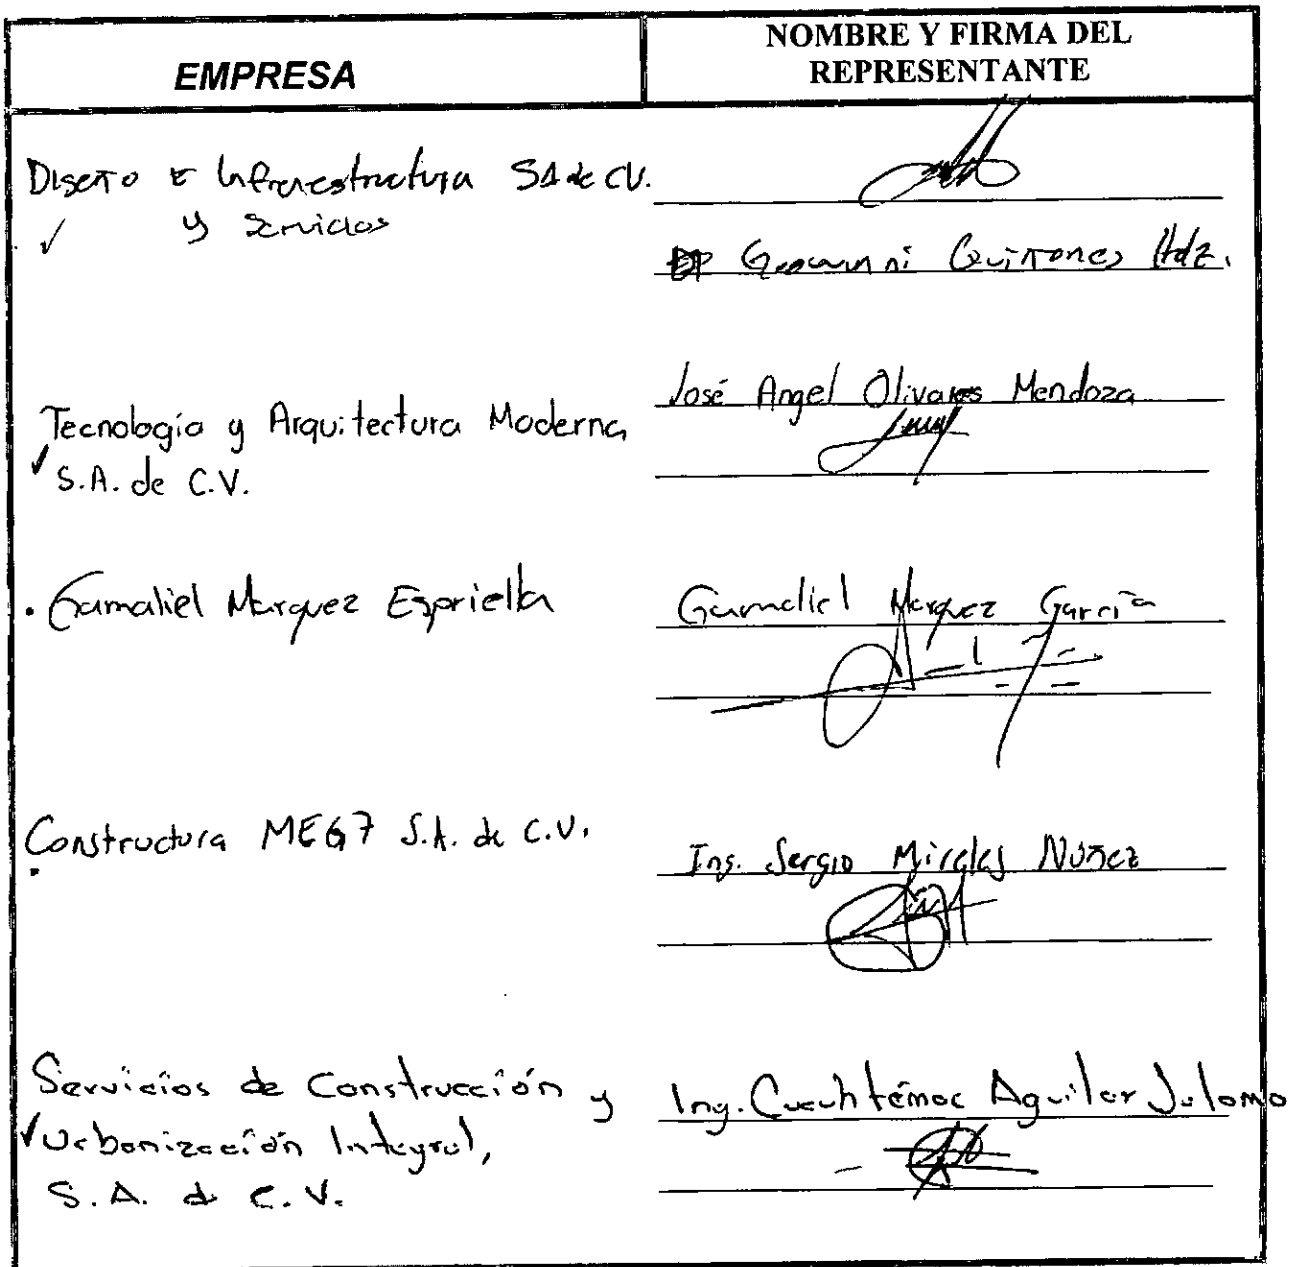 EMPRESA
NOMBRE Y FIRMA DEL
REPRESENTANTE
Diseño e Infraestructura SA de CV.
y Servicios
Geovanni Quiñones Hdz.
Tecnología y Arquitectura Moderna
S.A. de C.V.
José Angel Olivares Mendoza
Gamaliel Marquez Espriella
Gamaliel Marquez García
Constructora MEG7 S.A. de C.V.
Ing. Sergio Mireles Nuñez
Servicios de Construcción y
Urbanización Integral,
S.A. de C.V.
Ing. Cuauhtémoc Aguilar